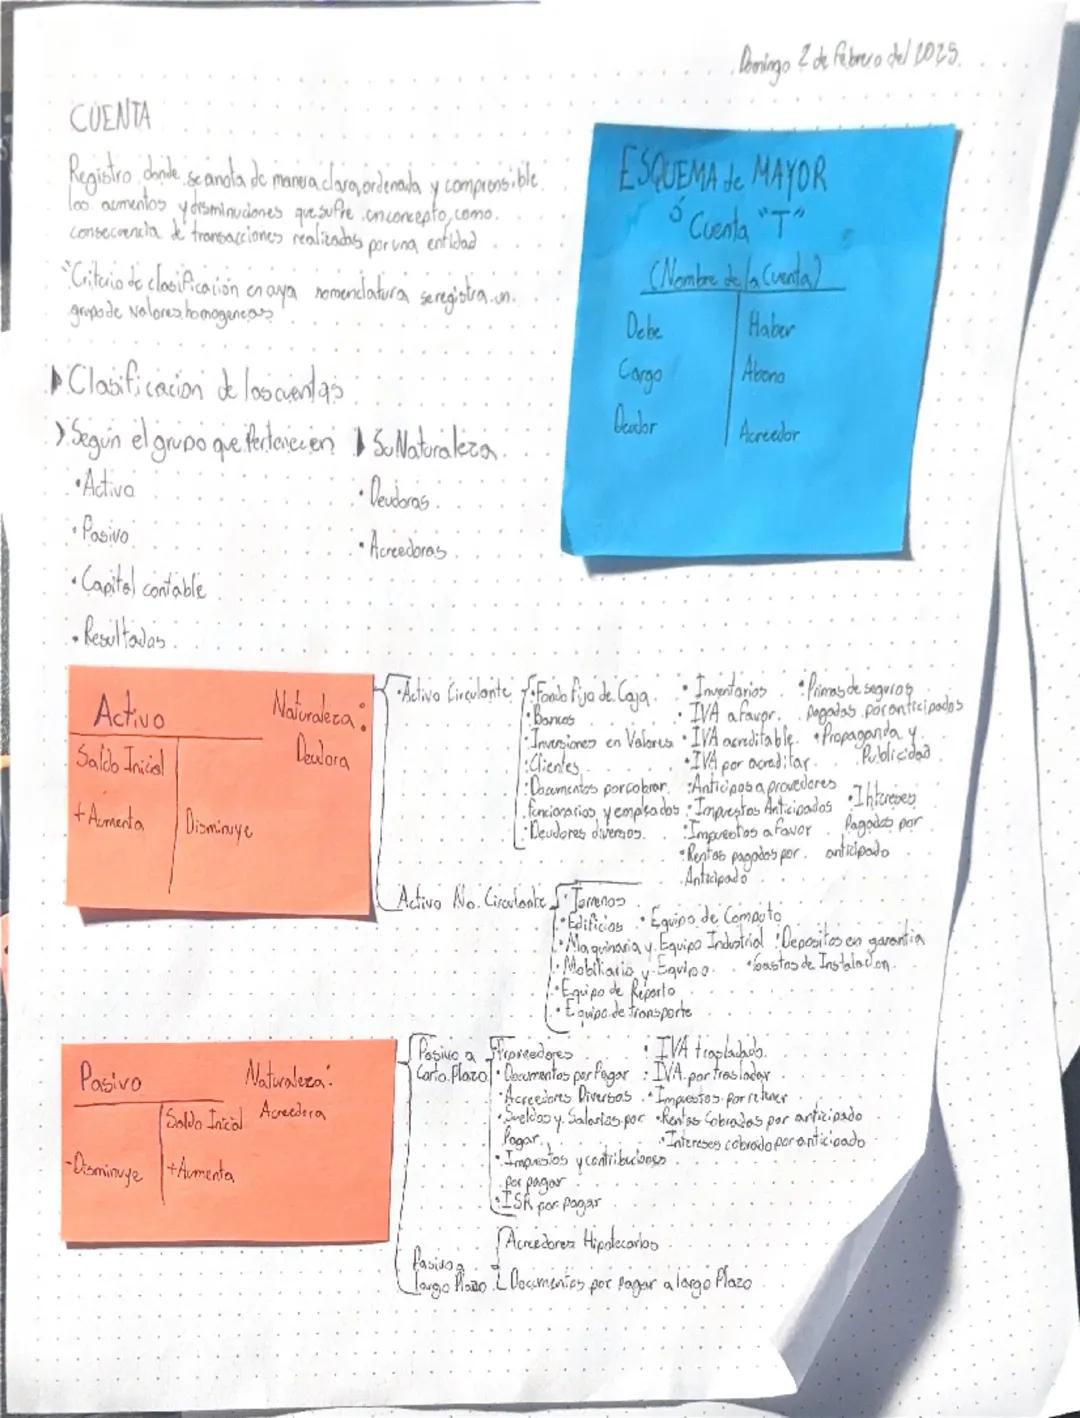 Domingo 2 de febrero del 2025.
CUENTA
Registro donde se anota de manera clara, ordenada y comprensible
los aumentos y disminuciones que sufre un concepto, como
consecuencia de transacciones realizadas por una entidad
"Criterio de clasificación en cuya nomenclatura se registra un
grupo de valores homogeneos
ESQUEMA de MAYOR
ó
Cuenta "T"
(Nombre de la Cuenta)
Debe Haber
Cargo Abono
Deudor Acreedor
Clasificacion de las cuentas
Según el grupo que Pertenecen
• Activo
• Pasivo
• Capital contable
• Resultados
Su Naturaleza
• Deudoras
• Acreedoras
Activo
Naturaleza:
Deudora
Saldo Inicial
+ Aumenta Disminuye
• Activo Circulante
• Fondo fijo de Caja
• Bancos
• Inversiones en Valores
• Clientes
• Documentos por cobrar
funcionarios y empleados
• Deudores diversos
• Inventarios
• IVA a favor
• IVA acreditable
• IVA por acreditar
• Anticipos a provedores
• Impuestos Anticipados
• Impuestos a favor
• Rentas pagadas por
Anticipado
• Primas de seguros
pagadas por anticipados
• Propaganda y
Publicidad
• Intereses
Pagados por
anticipado
Activo No. Circulante
• Terrenos
• Edificios • Equipo de Computo
• Maquinaria y Equipo Industrial • Depositos en garantia
• Mobiliario y Equipo • Gastos de Instalacion
• Equipo de Reparto
• Equipo de transporte
Pasivo
Naturaleza:
Acreedora
Saldo Inicial
- Disminuye + Aumenta
Pasivo a
Corto Plazo
Proveedores
• Documentos por Pagar
• Acreedores Diversos
• Sueldos y Salarios por
Pagar
• Impuestos y contribuciones
por pagar
• ISR por pagar
• IVA trasladado
• IVA por trasladar
• Impuestos por retener
• Rentas Cobradas por anticipado
• Intereses cobrado por anticipado
Pasivo a
largo Plazo
Acreedores Hipotecarios
Documentos por Pagar a largo Plazo